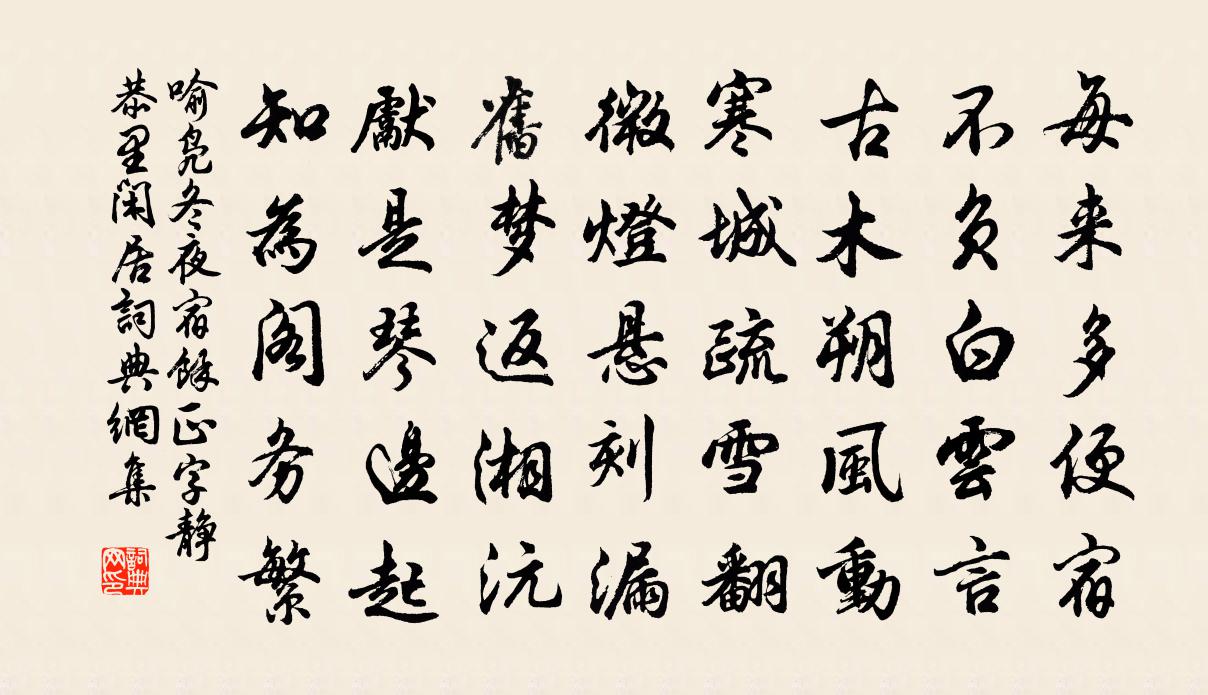 每来多便宿
不负白雲言
古木朔風動
寒城疏雪翻
微燈悬刻漏
舊梦返湘沅
獻是琴邊起
知為阁务繁
喻凫冬夜宿餘正字静
恭里閑居詞典網集
詞典网印